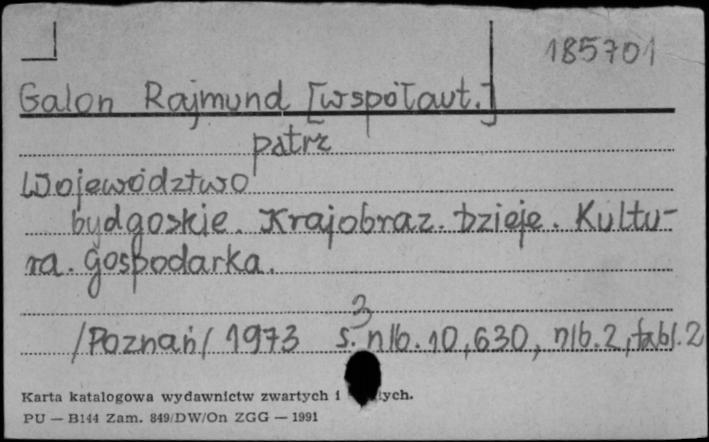 185701
Galon Rajmund [współaut.]
patrz
Województwo
bydgoskie. Krajobraz. Dzieje. Kultu-
ra. Gospodarka.
3
/Poznań/ 1973 s. nlb. 10, 630, nlb. 2, tabl. 2
Karta katalogowa wydawnictw zwartych i
PU — B144 Zam. 849/DW/On ZGG — 1991